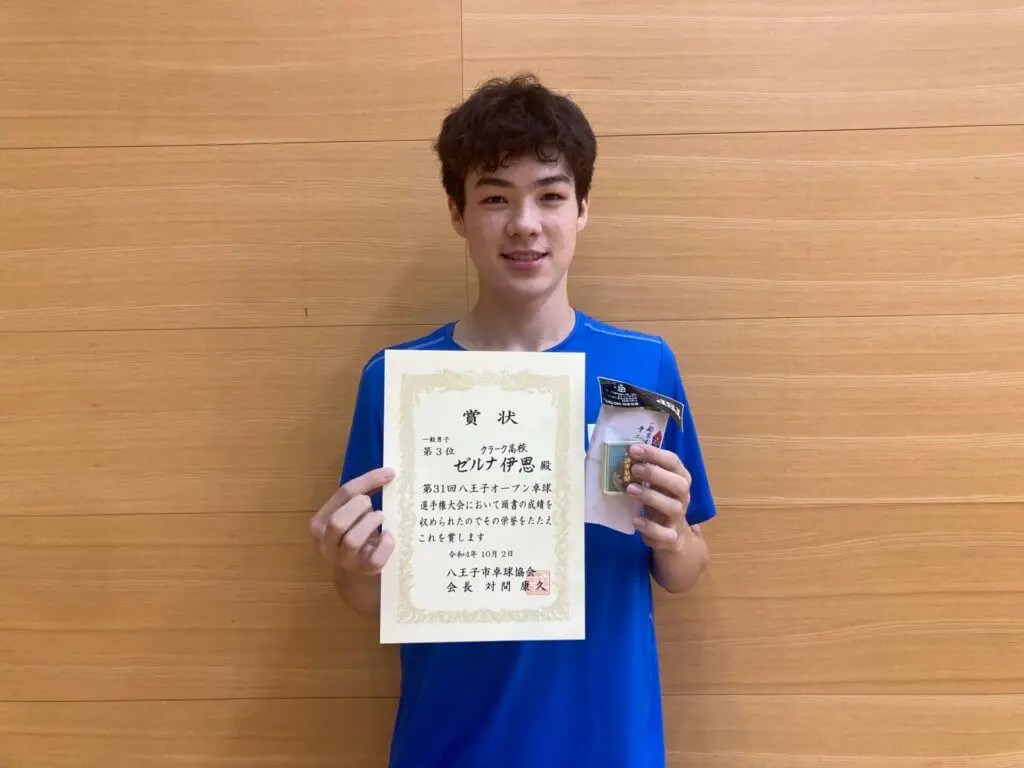 賞状
一般男子
第3位 クラーク高校
ゼルナ伊恩 殿
第31回八王子オープン卓球
選手権大会において頭書の成績を
収められたのでその栄誉をたたえ
これを賞します
令和4年10月2日
八王子市卓球協会
会長 対間康久